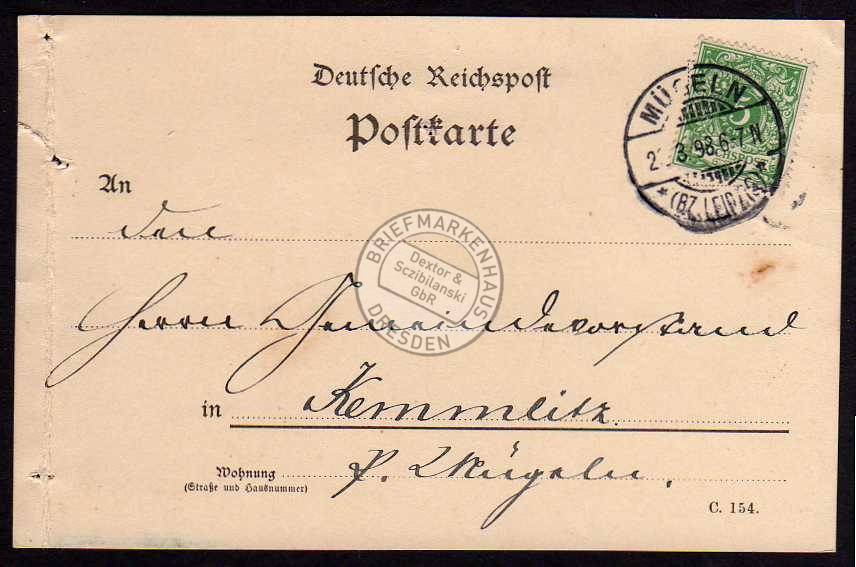 Deutsche Reichspost
Postkarte
MÜGELN
3 98.6-7N
*(BZ. LEIPZIG)*
An
den
Herrn Gemeindevorstand
in Kemmlitz.
Wohnung p. Mügeln.
(Straße und Hausnummer)
C. 154.
BRIEFMARKENHAUS
Dextor &
Sczibilanski
GbR
DRESDEN